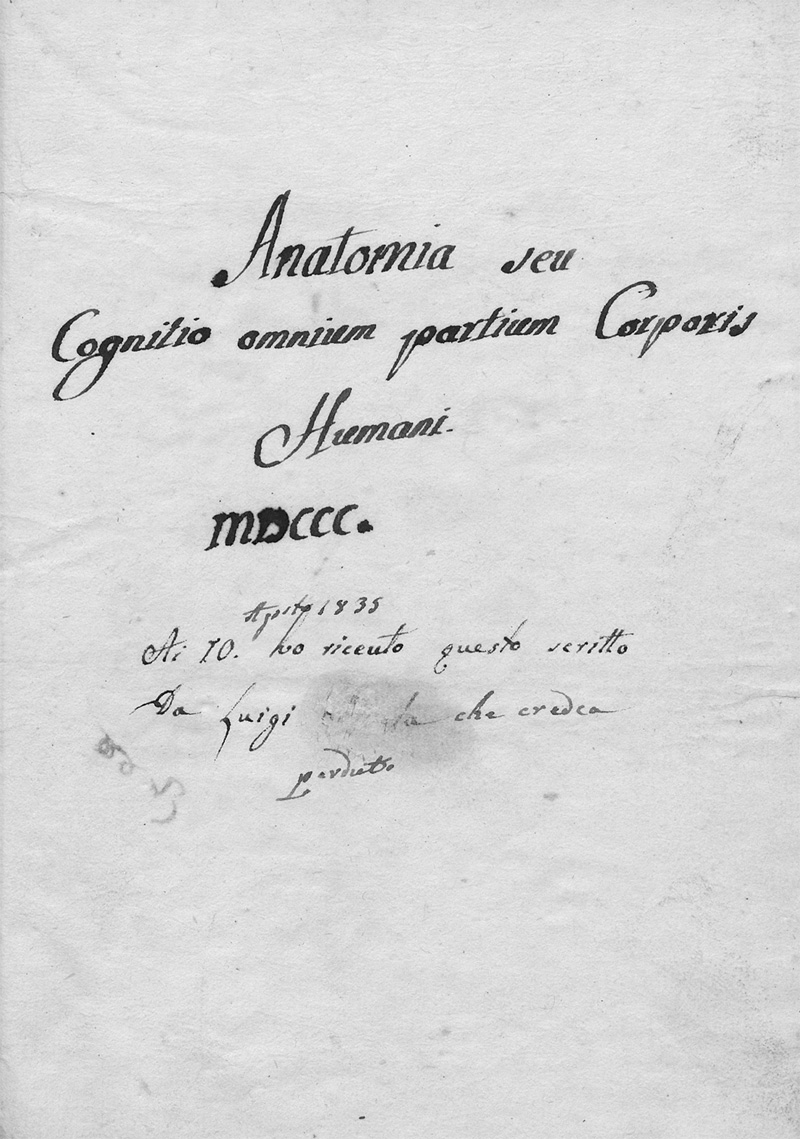 Anatomia seu
Cognitio omnium partium Corporis
Humani.
MDCCC.
1835
Ai 10. ho riceuto questo scritto
Da Luigi che credea
perduto